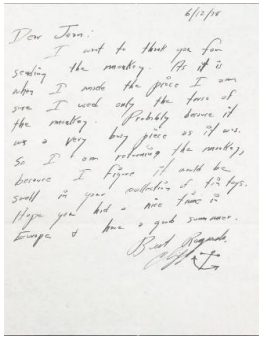 6/12/78
Dear Joan:
I want to thank you for
sending the monkey. As it is
when I made the piece I am
sure I used only the torso of
the monkey. Probably because it
was a very busy piece as it was.
So I am returning the monkey,
because I figure it would be
swell in your collection of tin toys.
Hope you had a nice time in
Europe & have a good summer.
Best Regards,